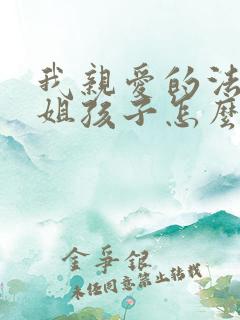 我親愛的法
姐孩子怎麼
金爭銀
未经同意禁止转载